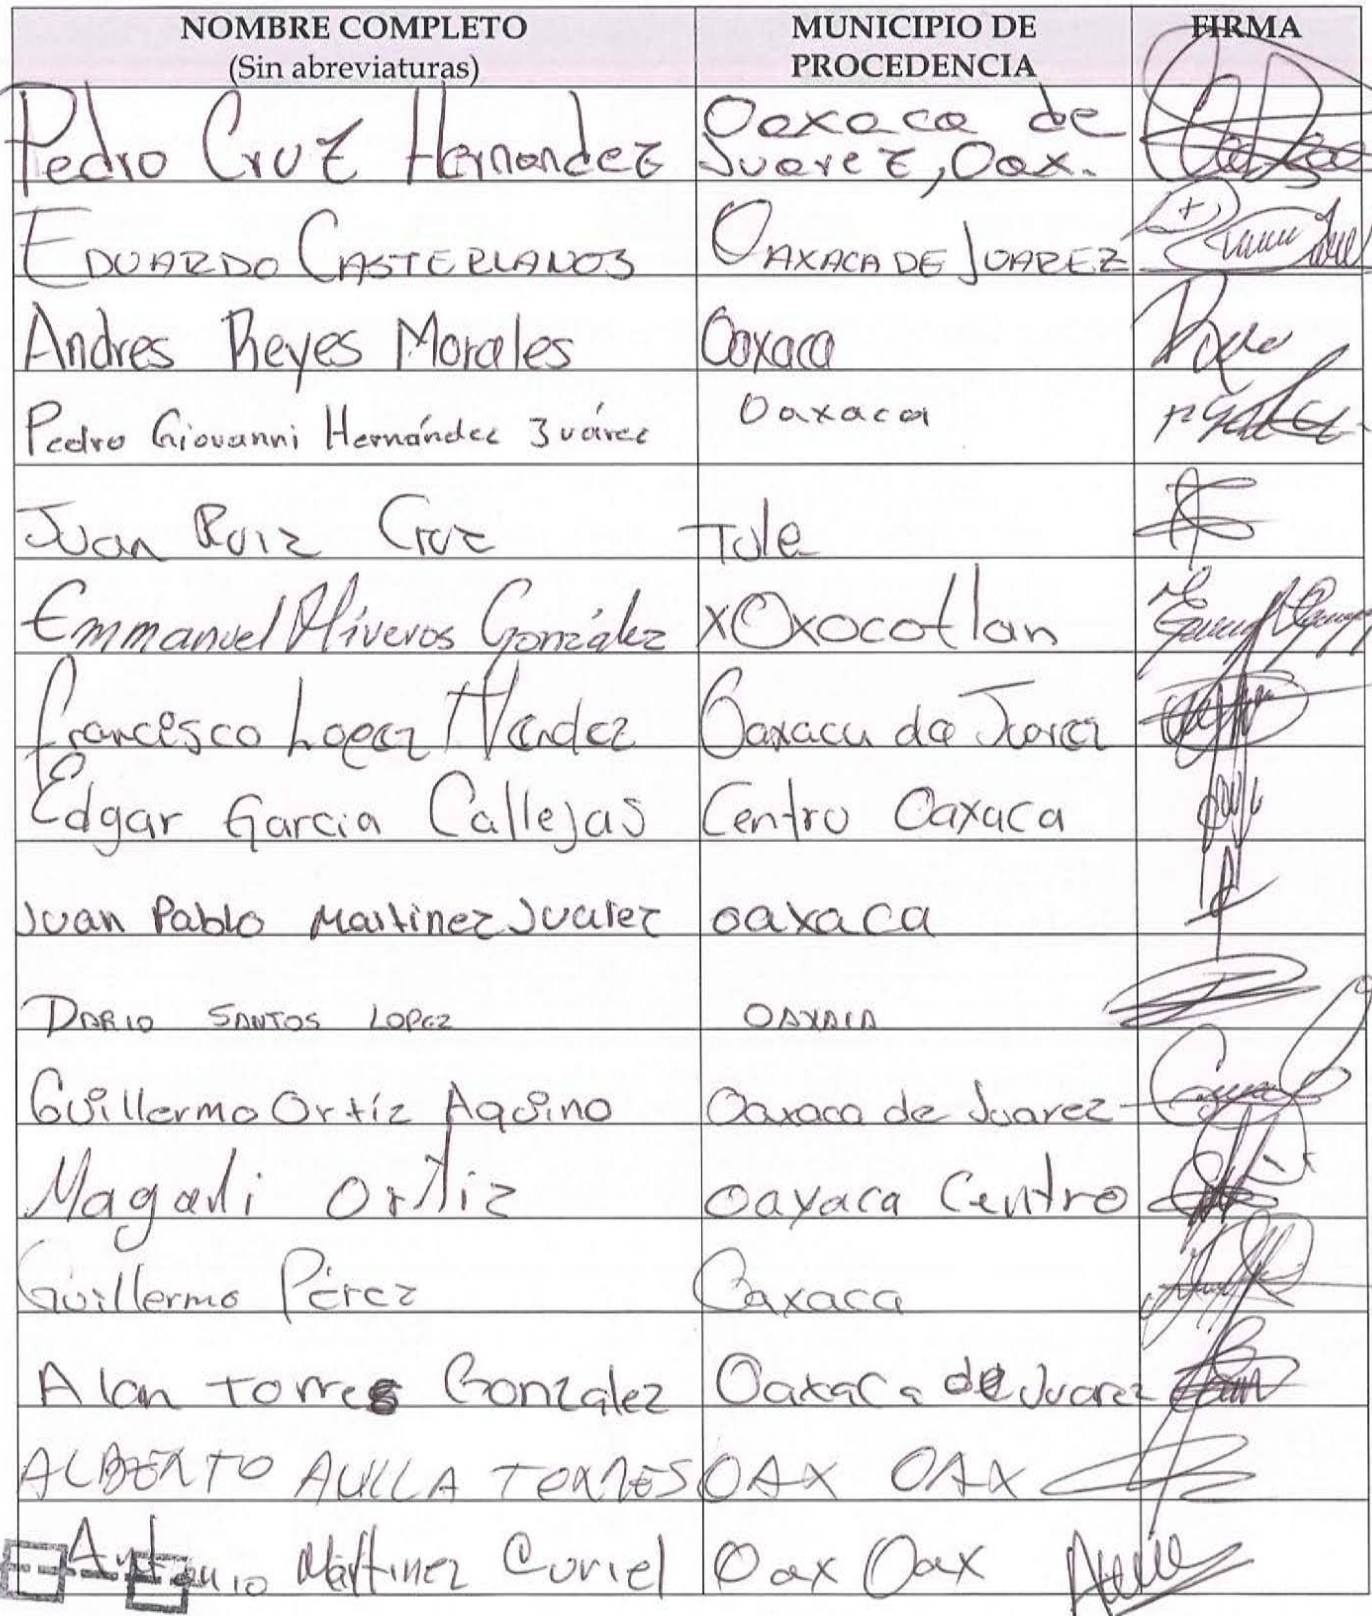 NOMBRE COMPLETO MUNICIPIO DE FIRMA
(Sin abreviaturas) PROCEDENCIA
Pedro Cruz Hernandez Oaxaca de
Juarez, Oax.
EDUARDO CASTELLANOS OAXACA DE JUAREZ
Andres Reyes Morales Oaxaca
Pedro Giovanni Hernández Juárez Oaxaca
Juan Ruiz Cruz Tule
Emmanuel Oliveros González xOxocotlan
Francisco Lopez Oaxaca de Juarez
Edgar Garcia Callejas Centro Oaxaca
Juan Pablo Martinez Juarez oaxaca
DARIO SANTOS LOPEZ OAXACA
Guillermo Ortíz Aquino Oaxaca de Juarez
Magali Ortiz Oaxaca Centro
Guillermo Pérez Oaxaca
Alan Torres Gonzalez Oaxaca de Juarez
ALBERTO TORRES OAX OAX
Antonio Martinez Curiel Oax Oax